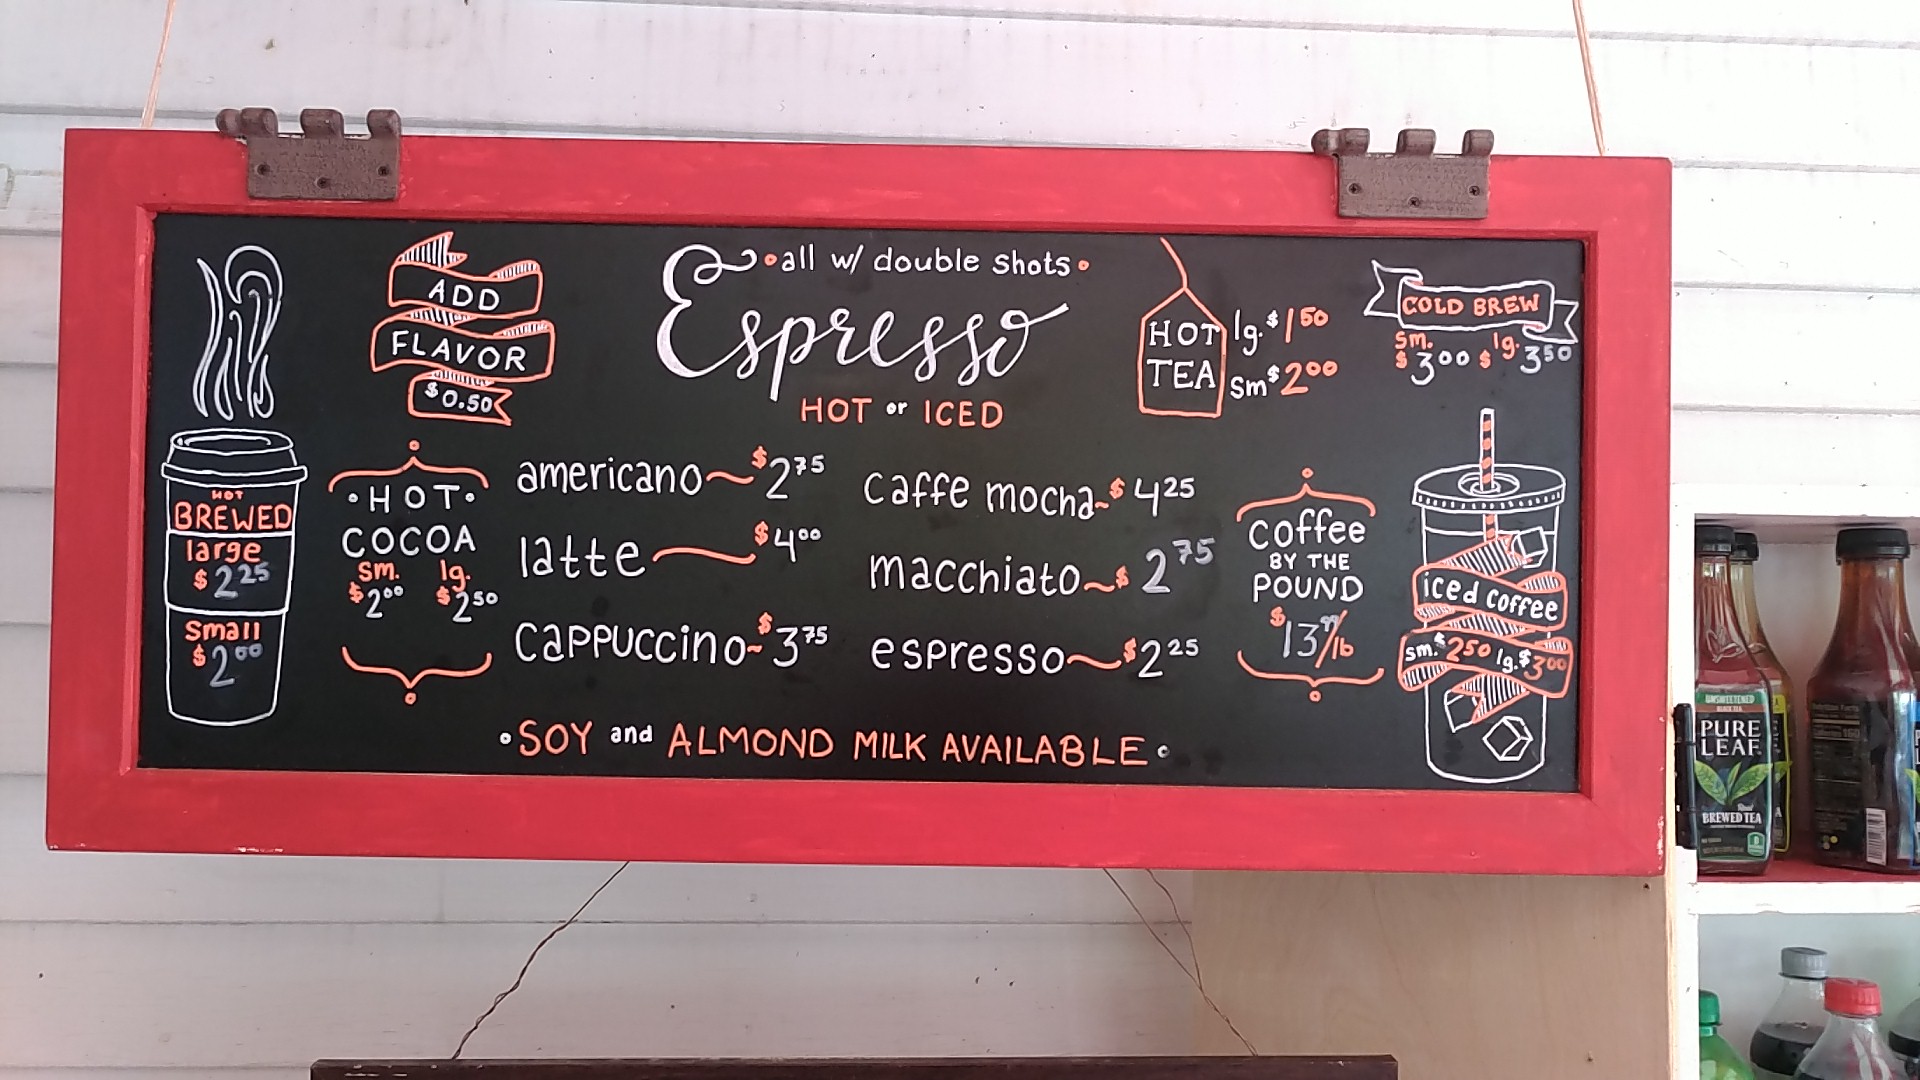 ADD
FLAVOR
$0.50
all w/ double shots
Espresso
HOT or ICED
HOT TEA
lg. $1.50
sm $2.00
COLD BREW
sm. $3.00 lg. $3.50
HOT
BREWED
large
$2.25
small
$2.00
HOT
COCOA
sm. lg.
$2.00 $2.50
americano~$2.75
latte~$4.00
cappuccino~$3.75
caffe mocha~$4.25
macchiato~$2.75
espresso~$2.25
coffee
BY THE
POUND
$13.99/lb
iced coffee
sm. $2.50 lg. $3.00
SOY and ALMOND MILK AVAILABLE
UNSWEETENED
BLACK TEA
PURE
LEAF
Real
BREWED TEA